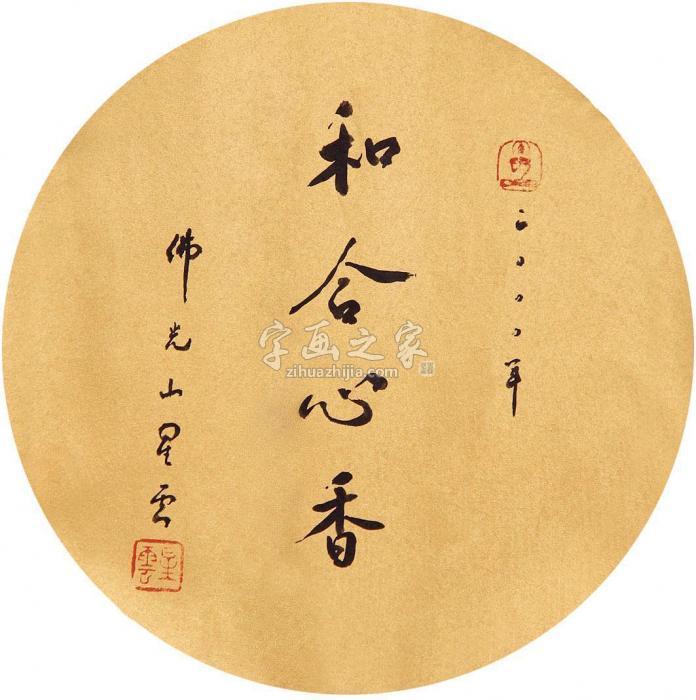 二〇〇〇年
和合心香
佛光山星雲
星雲
字画之家
zihuazhijia.com